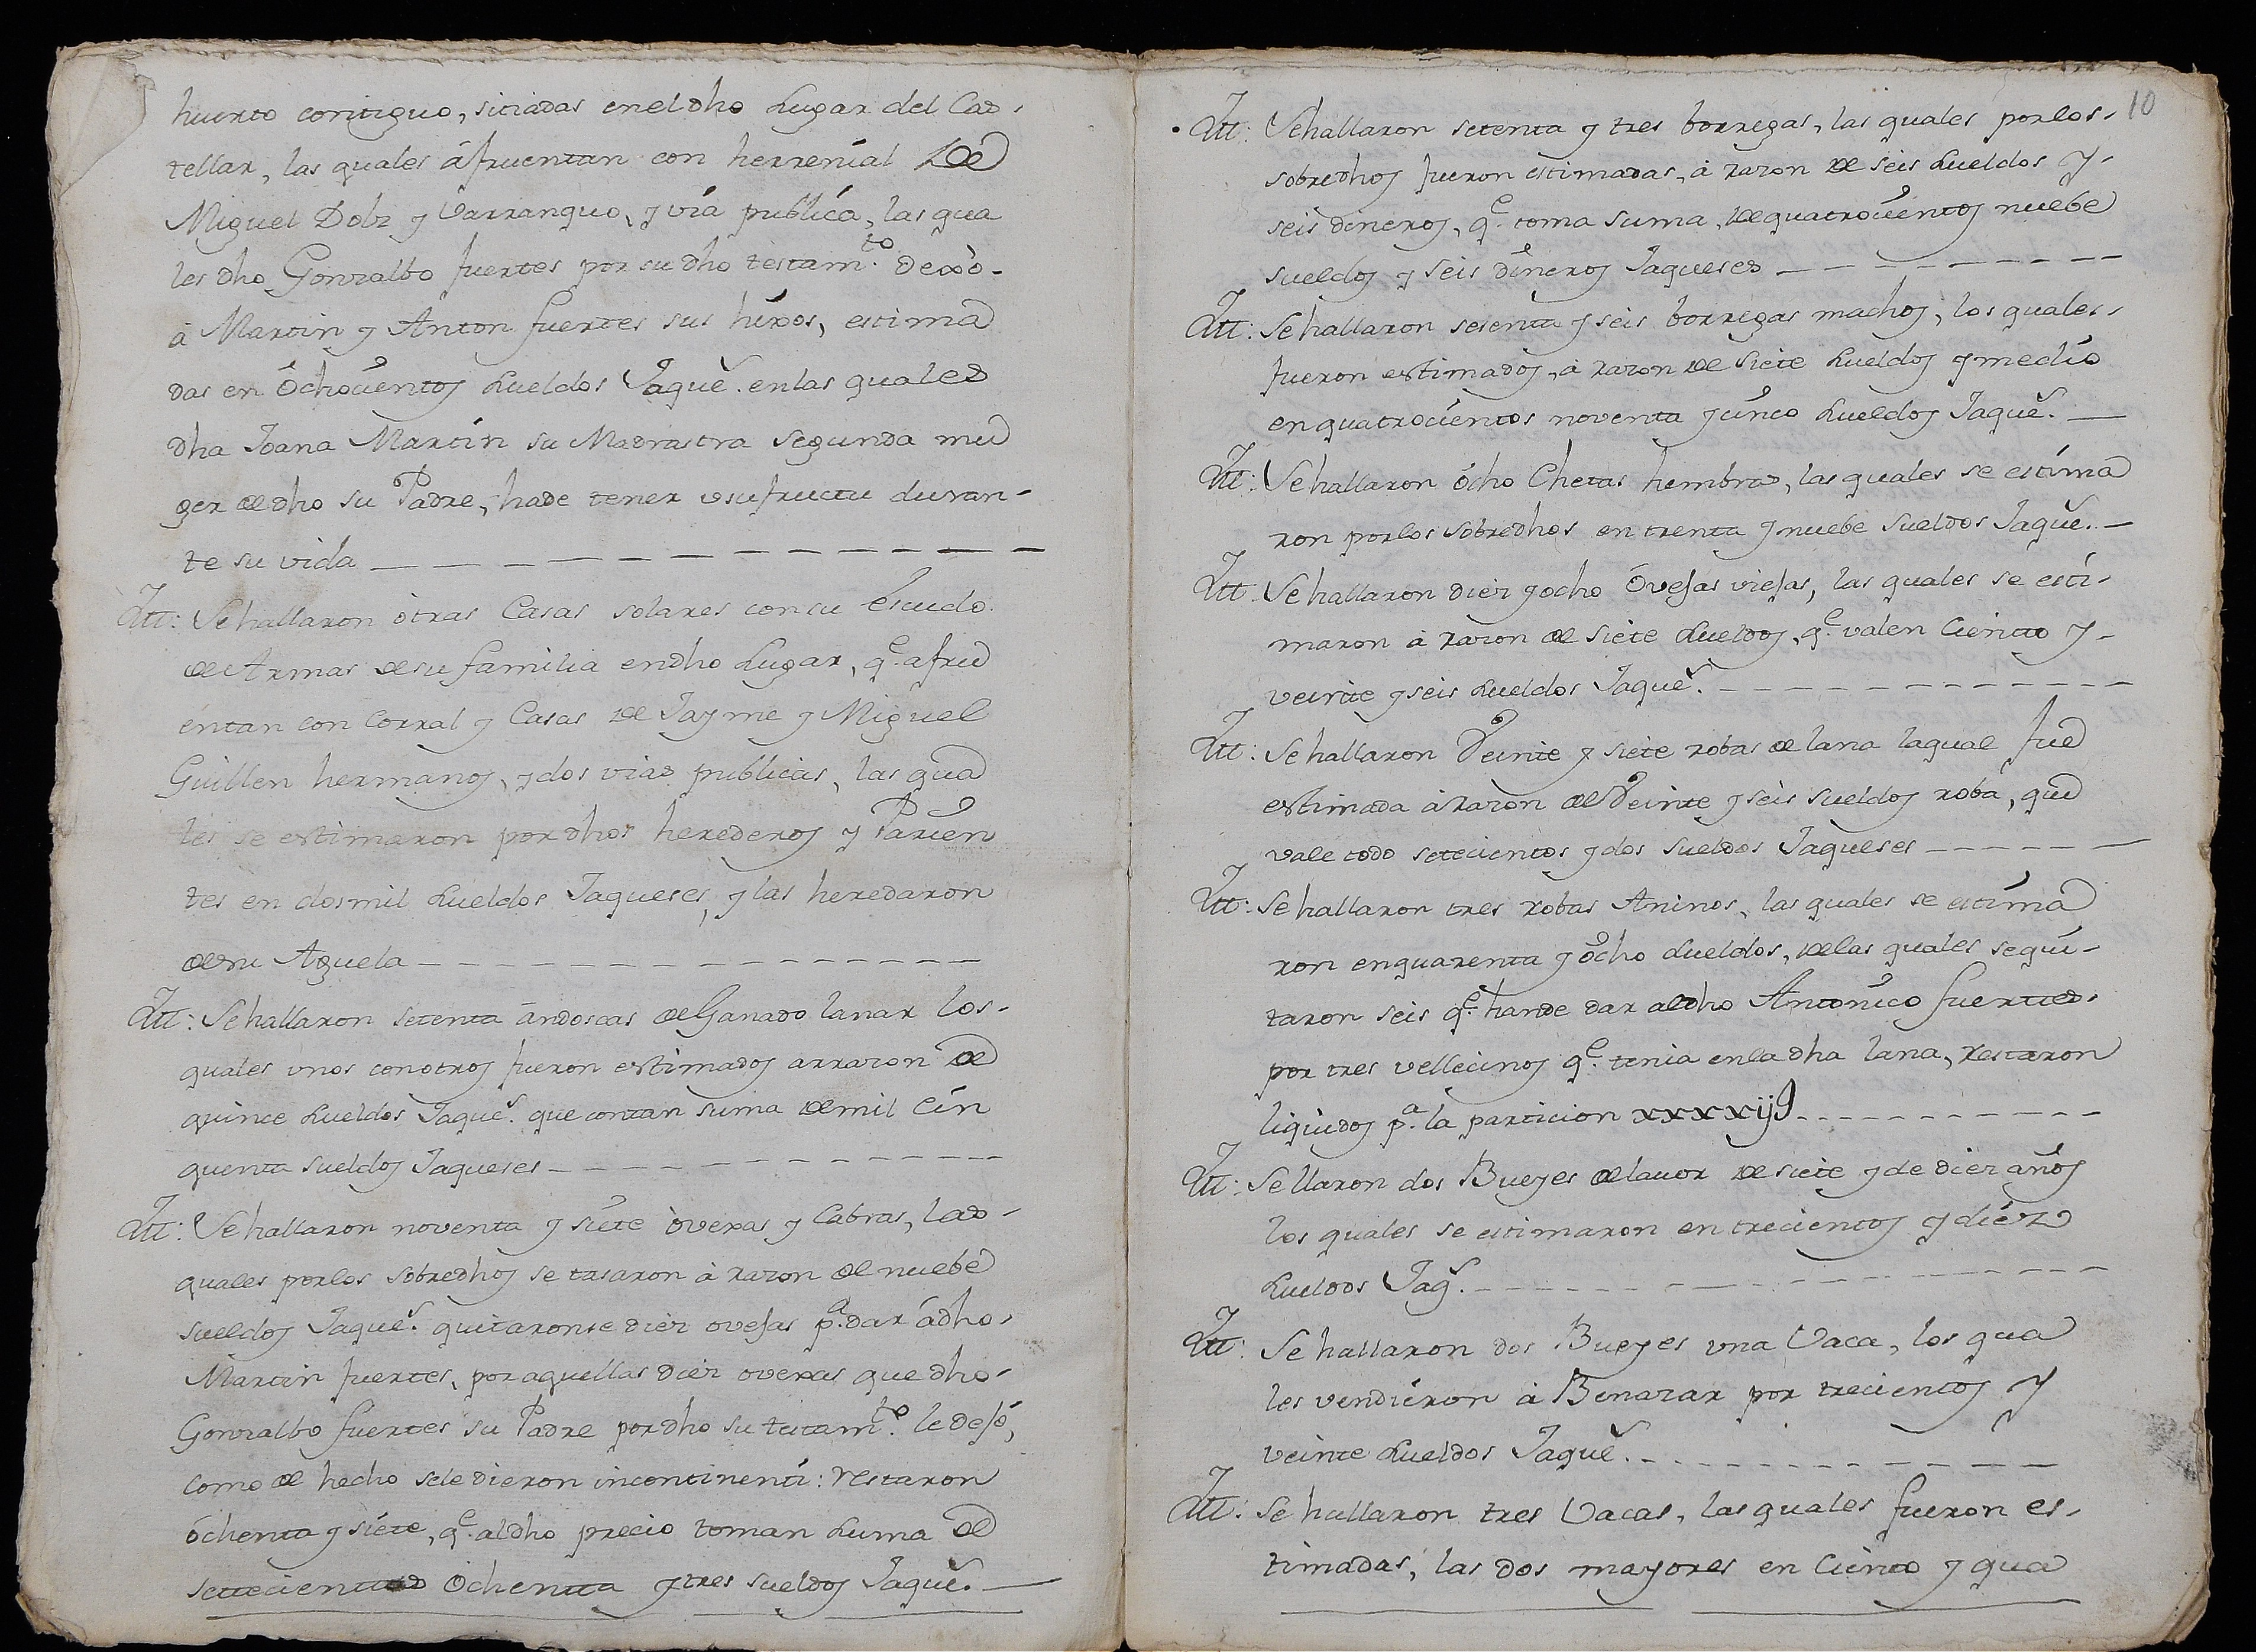 huerto contiguo, sitiadas en el dho Lugar del Cas-
tellar, las quales áfruentan con herreníal De
Miguel Dolz y Varranquo, y vía publíca, las qua
les dho Gonzalbo fuertes por su dho testam.to dexò-
à Martin y Anton fuertes sus híxos, estima
das en Óchocientos Sueldos Jaque.s en las quales
dha Joana Martín su Madrastra Segunda mu
ger de dho su Padre, hade tener vsufructu duran-
te su vida
Itt: Sehallaron òtras Casas solares con su Escudo
de Armas de su familia en dho Lugar, q.e afru
entan con Corral y Casas de Jayme y Miguel
Guillen hermanos, y dos vias publicas, las qua
les se estimaron por dhos herederos y Parien
tes en dosmil Sueldos Jaqueses, y las heredaron
de su Aguela
Itt: Sehallaron setenta ándoscas de Ganado lanar los-
quales vnos con otros fueron estimados arrazon de
quince Sueldos Jaque.s que contan suma de mil Cín
quenta sueldos Jaqueses
Itt: Sehallaron noventa y siéte òvexas y Cabras, las-
quales por los sobredhos se tasaron à razon de nuebe
sueldos Jaque.s quitaronse diez ovejas p.a dar ádho-
Martin fuertes, por aquellas diez ovexas que dho-
Gonzalbo fuertes su Padre por dho su testam.to le dejó,
como de hecho sele dieron incontinentí: restaron
óchenta y siéte, q.e al dho precio toman Suma de
settecientos Óchenta y tres sueldos Jaque.s
10
Itt: Sehallaron setenta y tres borregas, las quales por los-
sobredhos fueron estimadas, à razon de seis Sueldos y-
seis dineros, q.e toma suma, de quatrocientos nuebe
sueldos y seis dineros Jaqueses
Itt: Sehallaron sesenta y seis borregas machos, los quales-
fueron estimados, à razon de Siete Sueldos y medío
en quatrocientos noventa y cinco Sueldos Jaque.s
Itt: Sehallaron ócho Chotas hembras, las quales se estíma
ron por los sobredhos en trenta y nuebe sueldos Jaque.s
Itt: Sehallaron diez y ocho Óvejas viejas, las quales se estí-
maron à razon de siète Sueldos, q.e valen Ciento y-
veinte y seis Sueldos Jaque.s
Itt: Sehallaron Veinte y siete robas de lana laqual fue
estimada à razon de Veinte y seis sueldos roba, que
vale todo setecientos y dos Sueldos Jaqueses
Itt: Sehallaron tres robas Aninos, las quales se estíma
ron en quarenta y ócho Sueldos, de las quales se quí-
taron seis q.e hande dar al dho Antoníco fuertes-
por tres vellecinos q.e tenia en la dha lana, restaron
liquidos p.a la particion xxxxijs
Itt: Sellaron dos Bueyes de lavor de siete y de diez años
los quales se estimaron en trecientos y diéz
Sueldos Jaq.s
Itt: Sehallaron dos Bueyes vna Vaca, los qua
les vendiéron à Benazar por trecientos y
veinte Sueldos Jaque.s
Itt: Se hallaron tres Vacas, las quales fueron es-
timadas, las dos mayores en Ciento y qua